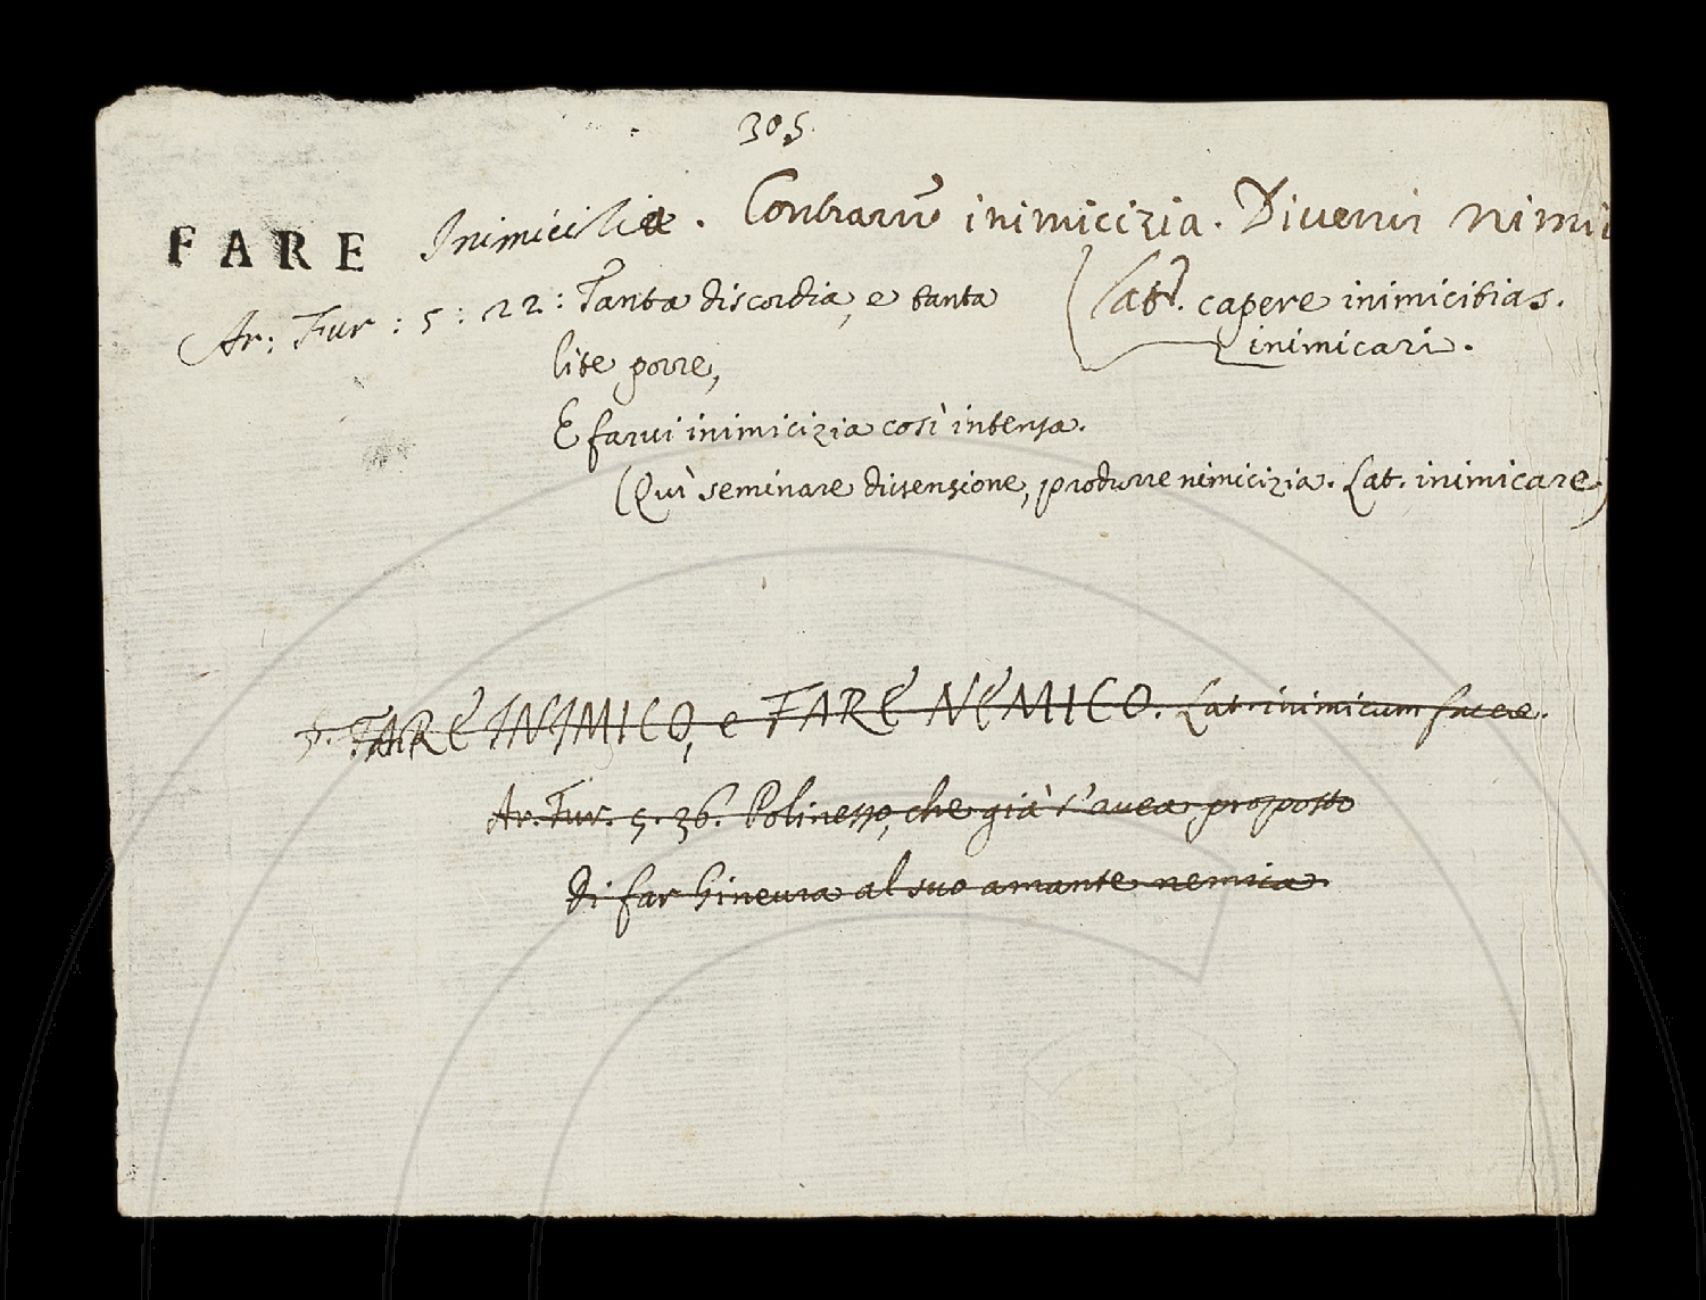 305.
FARE Inimicitia. Contrarre inimicizia. Divenir nimi
Ar: Fur: 5: 22: Tanta discordia, e tanta
(Lat. capere inimicitias.
inimicari.
lite porre,
E farvi inimicizia così intensa.
(Quì seminare dissensione, produrre nimicizia. Lat. inimicare)
§. FARE INIMICO, e FARE NEMICO. Lat. inimicum facere.
Ar. Fur. 5. 36. Polinesso, che già s'avea proposto
Di far Ginevra al suo amante nemica.